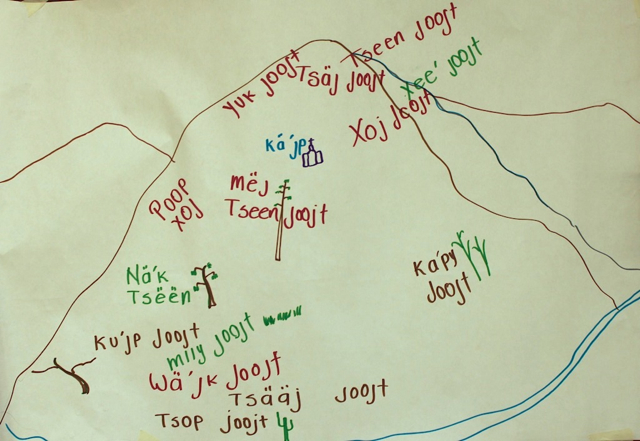 Tseen joojt
Yuk joojt
Tsäj joojt
Xee' joojt
Xoj Joojt
Ká'jp
Poop
xoj
mëj
Tseen joojt
Ká'py
Joojt
Nä'k
Tsëën
Ku'jp Joojt
miiy joojt
Wä'jk Joojt
Tsääj joojt
Tsop joojt